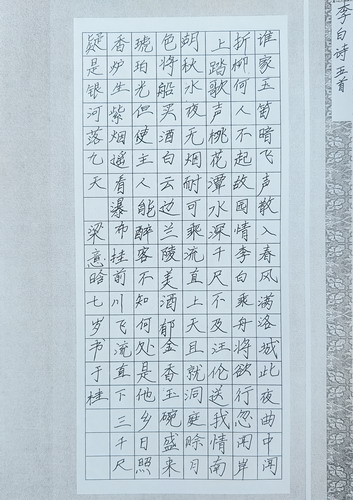 李白诗五首
谁家玉笛暗飞声散入春风满洛城此夜曲中闻
折柳何人不起故园情李白乘舟将欲行忽闻岸
上踏歌声桃花潭水深千尺不及汪伦送我情南
湖秋水夜无烟耐可乘流直上天且就洞庭赊月
色将船买酒白云边兰陵美酒郁金香玉碗盛来
琥珀光但使主人能醉客不知何处是他乡日照
香炉生紫烟遥看瀑布挂前川飞流直下三千尺
疑是银河落九天 梁意晗七岁书于桂